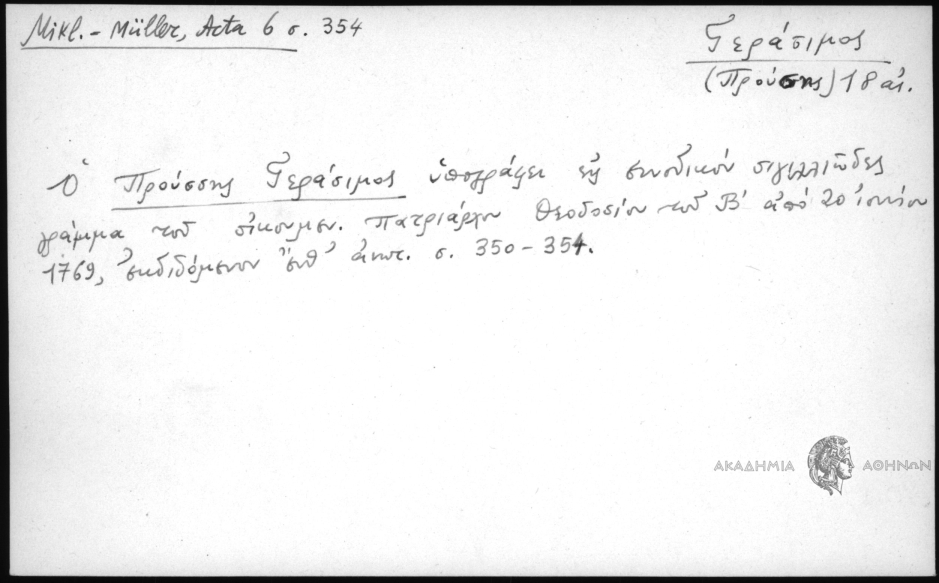 Mikl.-Müller, Acta 6 σ. 354
Γεράσιμος
(Προύσης) 18 αἰ.
Ὁ Προύσσης Γεράσιμος ὑπογράφει εἰς συνοδικόν σιγιλλιῶδες
γράμμα τοῦ οἰκουμεν. πατριάρχου Θεοδοσίου τοῦ Β' ἀπό 20 ἰουνίου
1769, ἐκδιδόμενον ἐνθ' ἀνωτ. σ. 350-354.
ΑΚΑΔΗΜΙΑ ΑΘΗΝΩΝ